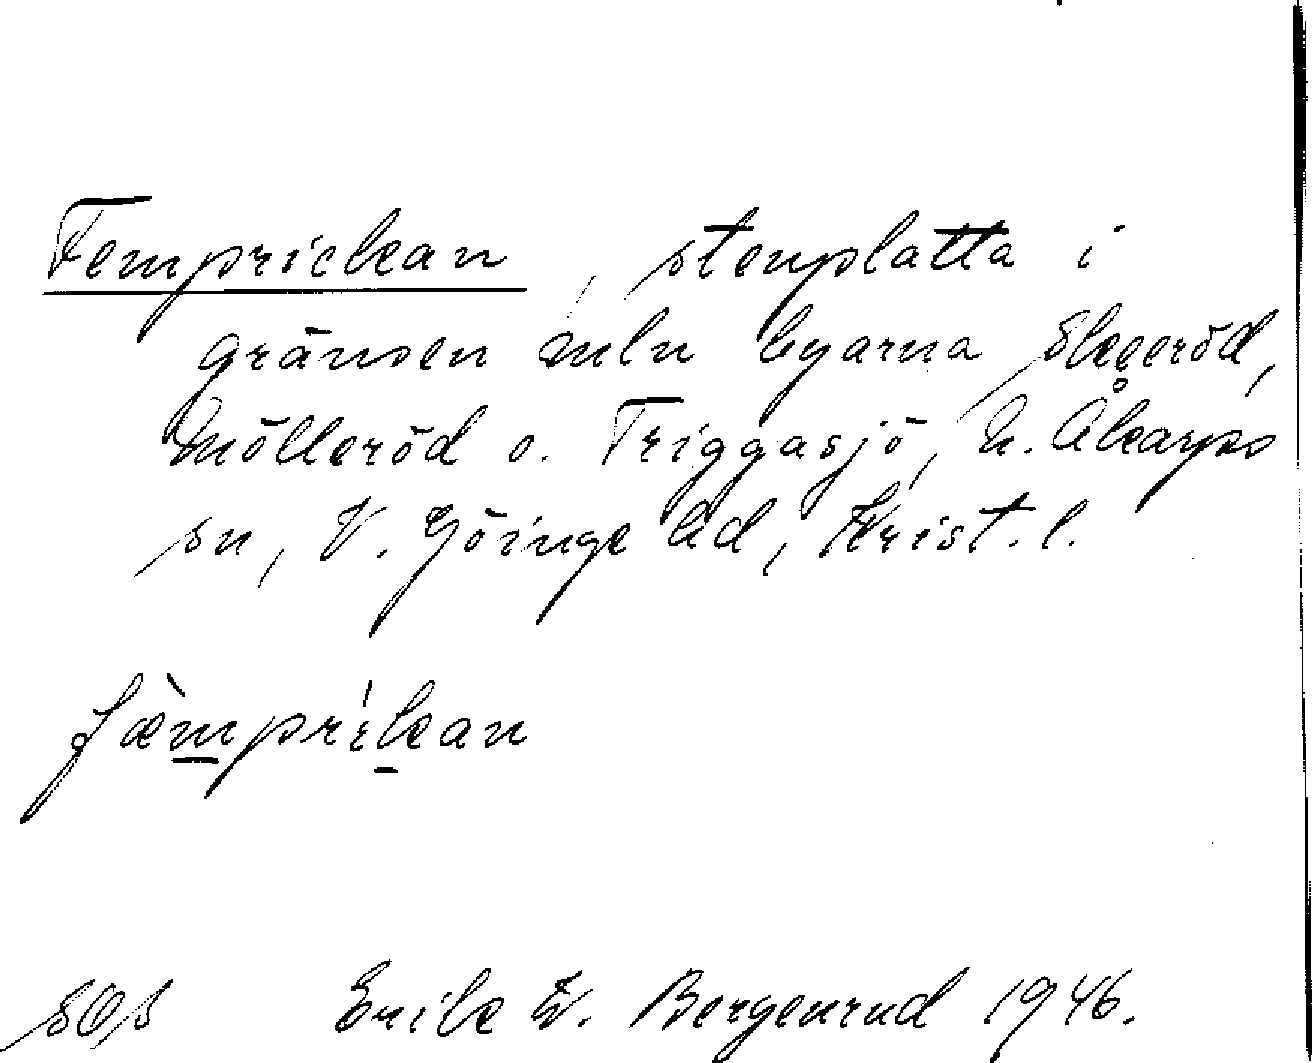 Femprickan, stenplatta i
gränsen mln byarna Skeeröd,
Mölleröd o. Triggasjö, N. Åkarps
sn, V. Göinge hd, Krist. l.
fæ̀mprìkan
Erik W. Bergenrud 1946.